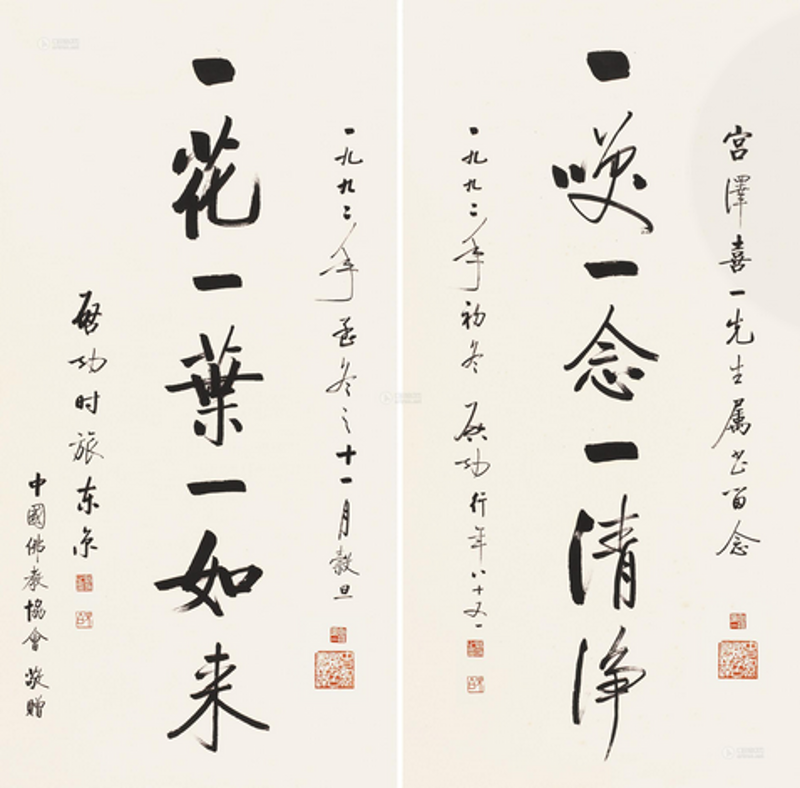 宮澤喜一先生属书留念
一咲一念一清浄
一九九二年初冬 啓功 行年八十又一
一九九二年孟冬之十一月穀旦
一花一葉一如来
啓功时旅东京
中國佛教協會敬贈